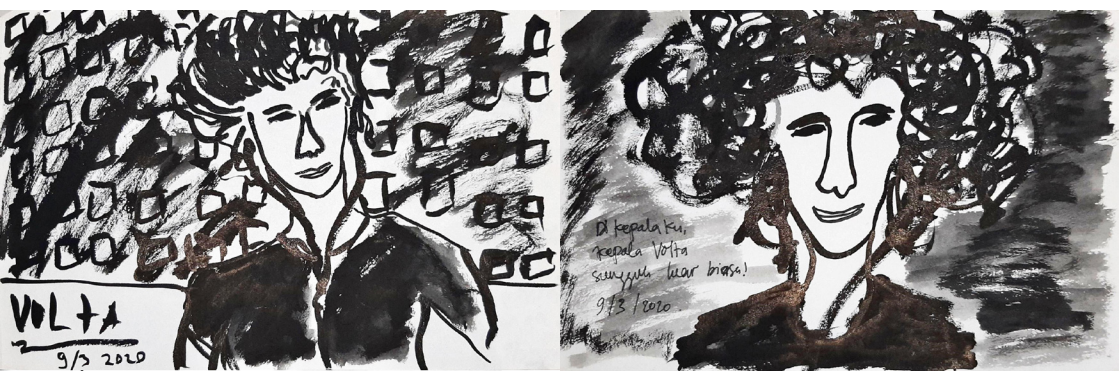 VOLtA
9/3 2020
Di kepalaku,
kepala Volta
sungguh luar biasa!
9/3/2020